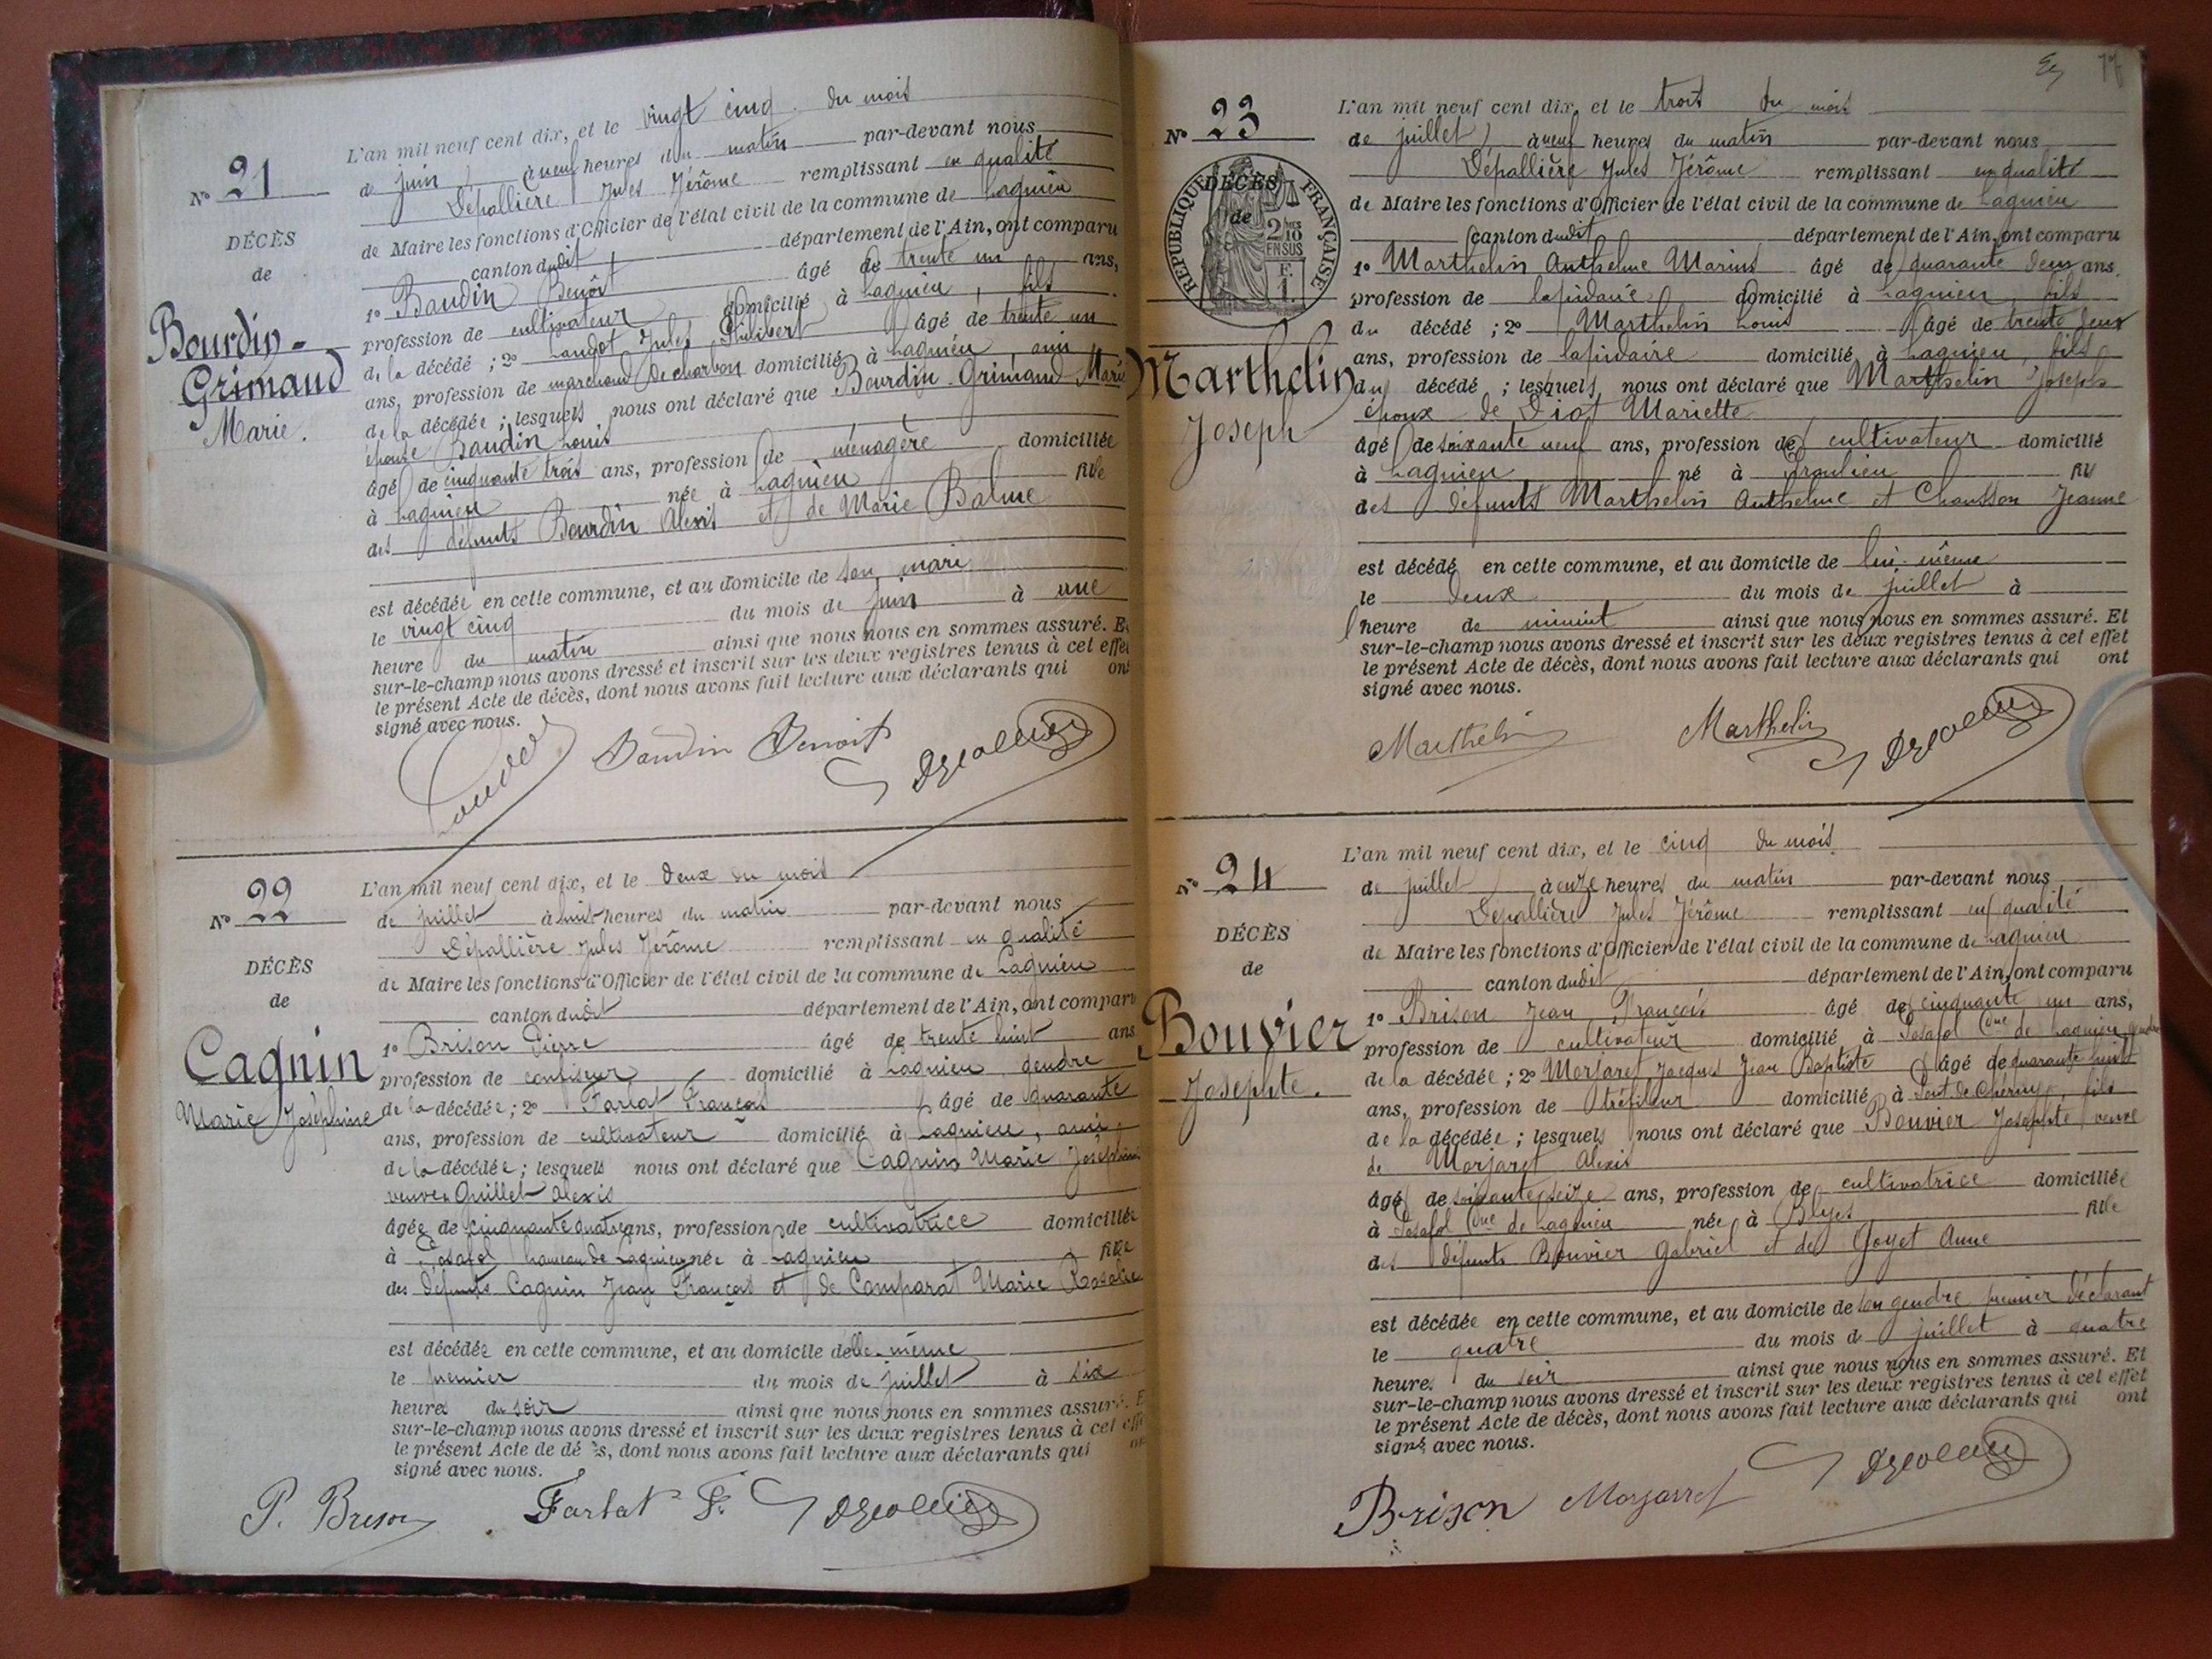 L'an mil neuf cent dix, et le vingt cinq du mois
N° 21
de juin, à neuf heures du matin par-devant nous
Dépallière Jules Jérôme remplissant en qualité
DÉCÈS
de Maire les fonctions d'Officier de l'état civil de la commune de Lagnieu
de
canton dudit département de l'Ain, ont comparu
1° Baudin Benoît âgé de trente un ans,
Bourdin-
profession de cultivateur domicilié à Lagnieu, fils
Grimaud
de la décédé ; 2° Landot Jules Philibert âgé de trente un
Marie.
ans, profession de marchand de charbon domicilié à Lagnieu, ami
de la décédée ; lesquels nous ont déclaré que Bourdin-Grimaud Marie
épouse Baudin Louis
âgé de cinquante trois ans, profession de ménagère domiciliée
à Lagnieu née à Lagnieu fille
des défunts Bourdin Alexis et de Marie Balme
est décédée en cette commune, et au domicile de son mari
le vingt cinq du mois de juin à une
heure du matin ainsi que nous nous en sommes assuré. Et
sur-le-champ nous avons dressé et inscrit sur les deux registres tenus à cet effet
le présent Acte de décès, dont nous avons fait lecture aux déclarants qui ont
signé avec nous.
Baudin Benoit
N° 22
L'an mil neuf cent dix, et le deux du mois
de juillet à huit heures du matin par-devant nous
Dépallière Jules Jérôme remplissant en qualité
DÉCÈS
de Maire les fonctions d'Officier de l'état civil de la commune de Lagnieu
de
canton dudit département de l'Ain, ont comparu
Cagnin
1° Brison Pierre âgé de trente huit ans
profession de confiseur domicilié à Lagnieu, gendre
Marie Joséphine
de la décédée ; 2° Farlat François âgé de quarante
ans, profession de cultivateur domicilié à Lagnieu, ami
de la décédée ; lesquels nous ont déclaré que Cagnin Marie Joséphine
veuve Guillet Alexis
âgée de cinquante quatre ans, profession de cultivatrice domiciliée
à Posafol hameau de Lagnieu née à Lagnieu fille
des défunts Cagnin Jean François et de Comparat Marie Rosalie
est décédée en cette commune, et au domicile d'elle-même
le premier du mois de juillet à six
heures du soir ainsi que nous nous en sommes assuré. E
sur-le-champ nous avons dressé et inscrit sur les deux registres tenus à cet effe
le présent Acte de dé s, dont nous avons fait lecture aux déclarants qui on
signé avec nous.
P. Brison Farlat F.
N° 23
L'an mil neuf cent dix, et le trois du mois
de juillet, à neuf heures du matin par-devant nous
Dépallière Jules Jérôme remplissant en qualité
RÉPUBLIQUE FRANÇAISE
DÉCÈS
de
2/10 EN SUS
F. 1.
de Maire les fonctions d'Officier de l'état civil de la commune de Lagnieu
canton dudit département de l'Ain, ont comparu
1° Marthelin Anthelme Marius âgé de quarante deux ans.
profession de lapidaire domicilié à Lagnieu, fils
du décédé ; 2° Marthelin Louis âgé de trente deux
Marthelin
ans, profession de lapidaire domicilié à Lagnieu, fils
Joseph
du décédé ; lesquels nous ont déclaré que Marthelin Joseph
époux de Diot Mariette
âgé de soixante neuf ans, profession de cultivateur domicilié
à Lagnieu né à Proulieu fils
des défunts Marthelin Anthelme et Chausson Jeanne
est décédé en cette commune, et au domicile de lui-même
le deux du mois de juillet à
l'heure de minuit ainsi que nous nous en sommes assuré. Et
sur-le-champ nous avons dressé et inscrit sur les deux registres tenus à cet effet
le présent Acte de décès, dont nous avons fait lecture aux déclarants qui ont
signé avec nous.
Marthelin Marthelin
N° 24
L'an mil neuf cent dix, et le cinq du mois
de juillet, à onze heures du matin par-devant nous
Dépallière Jules Jérôme remplissant en qualité
DÉCÈS
de Maire les fonctions d'Officier de l'état civil de la commune de Lagnieu
de
canton dudit département de l'Ain, ont comparu
Bouvier
1° Brison Jean François âgé de cinquante un ans,
Josephte.
profession de cultivateur domicilié à Posafol Cne de Lagnieu, gendre
de la décédée ; 2° Morjaret Jacques Jean Baptiste âgé de quarante huit
ans, profession de tréfileur domicilié à Pont de Chéruy, fils
de la décédée ; lesquels nous ont déclaré que Bouvier Josephte, veuve
de Morjaret Alexis
âgé de soixante seize ans, profession de cultivatrice domiciliée
à Posafol Cne de Lagnieu née à Blyes fille
des défunts Bouvier Gabriel et de Goyet Anne
est décédée en cette commune, et au domicile de son gendre premier déclarant
le quatre du mois de juillet à quatre
heures du soir ainsi que nous nous en sommes assuré. Et
sur-le-champ nous avons dressé et inscrit sur les deux registres tenus à cet effet
le présent Acte de décès, dont nous avons fait lecture aux déclarants qui ont
signé avec nous.
Brison Morjarret